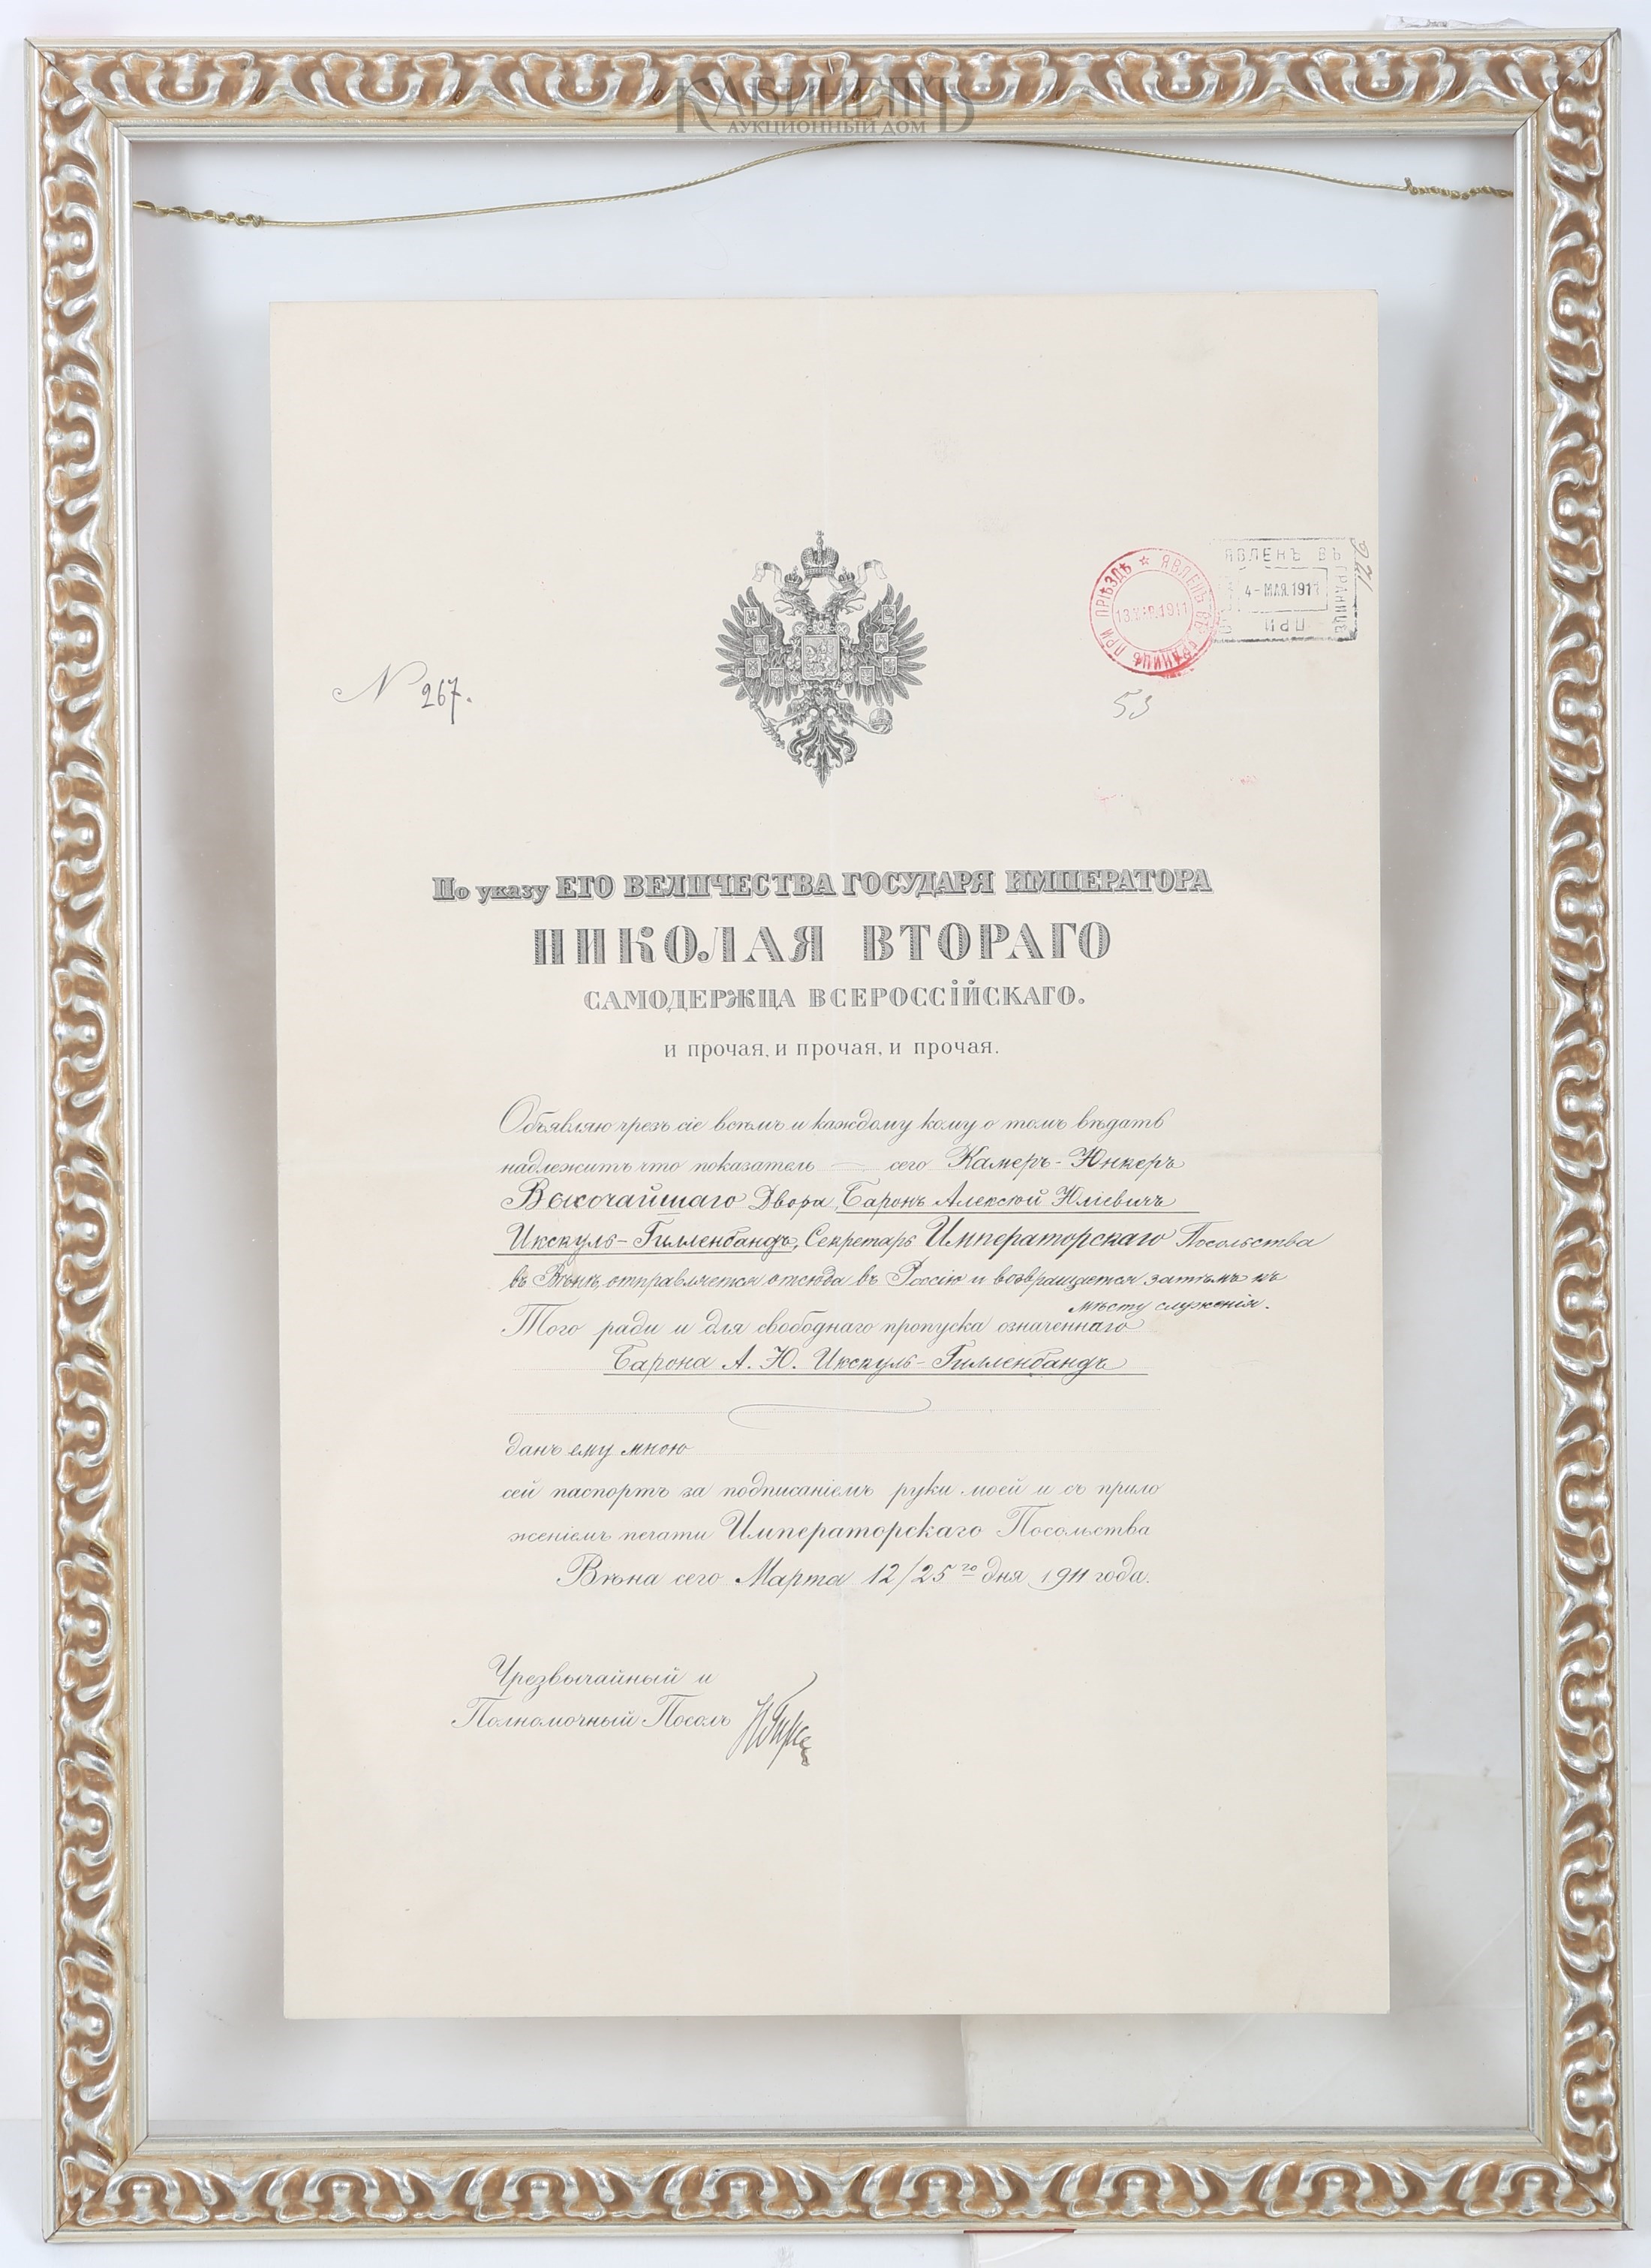 КАБИНЕТЪ
АУКЦИОННЫЙ ДОМ
ЯВЛЕНЪ ВЪ ГРАНИЦѢ ПРИ
4-МАЯ.1911
ЯВЛЕНЪ ВЪ ГРАНИЦѢ ПРИ ПРІѢЗДѢ
13.МАР.1911
N 267.
53
По указу ЕГО ВЕЛИЧЕСТВА ГОСУДАРЯ ИМПЕРАТОРА
НИКОЛАЯ ВТОРАГО
САМОДЕРЖЦА ВСЕРОССІЙСКАГО.
и прочая, и прочая, и прочая.
Объявляю чрезъ сіе всѣмъ и каждому кому о томъ вѣдать
надлежитъ что показатель — сего Камеръ-Юнкеръ
Высочайшаго Двора, Баронъ Алексѣй Юліевичъ
Икскуль-Гилленбандъ, Секретарь Императорскаго Посольства
въ Вѣнѣ, отправляется отсюда въ Россію и возвращается затѣмъ къ
мѣсту служенія.
Того ради и для свободнаго пропуска означеннаго
Барона А. Ю. Икскуль-Гилленбандъ
данъ ему мною
сей паспортъ за подписаніемъ руки моей и съ прило
женіемъ печати Императорскаго Посольства
Вѣна сего Марта 12/25го дня 1911 года.
Чрезвычайный и
Полномочный Посолъ